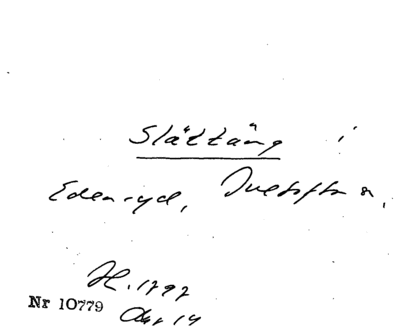 Slättäng i
Edenryd, Ivetofta s.
H. 1797
Nr 10779 Akt 14